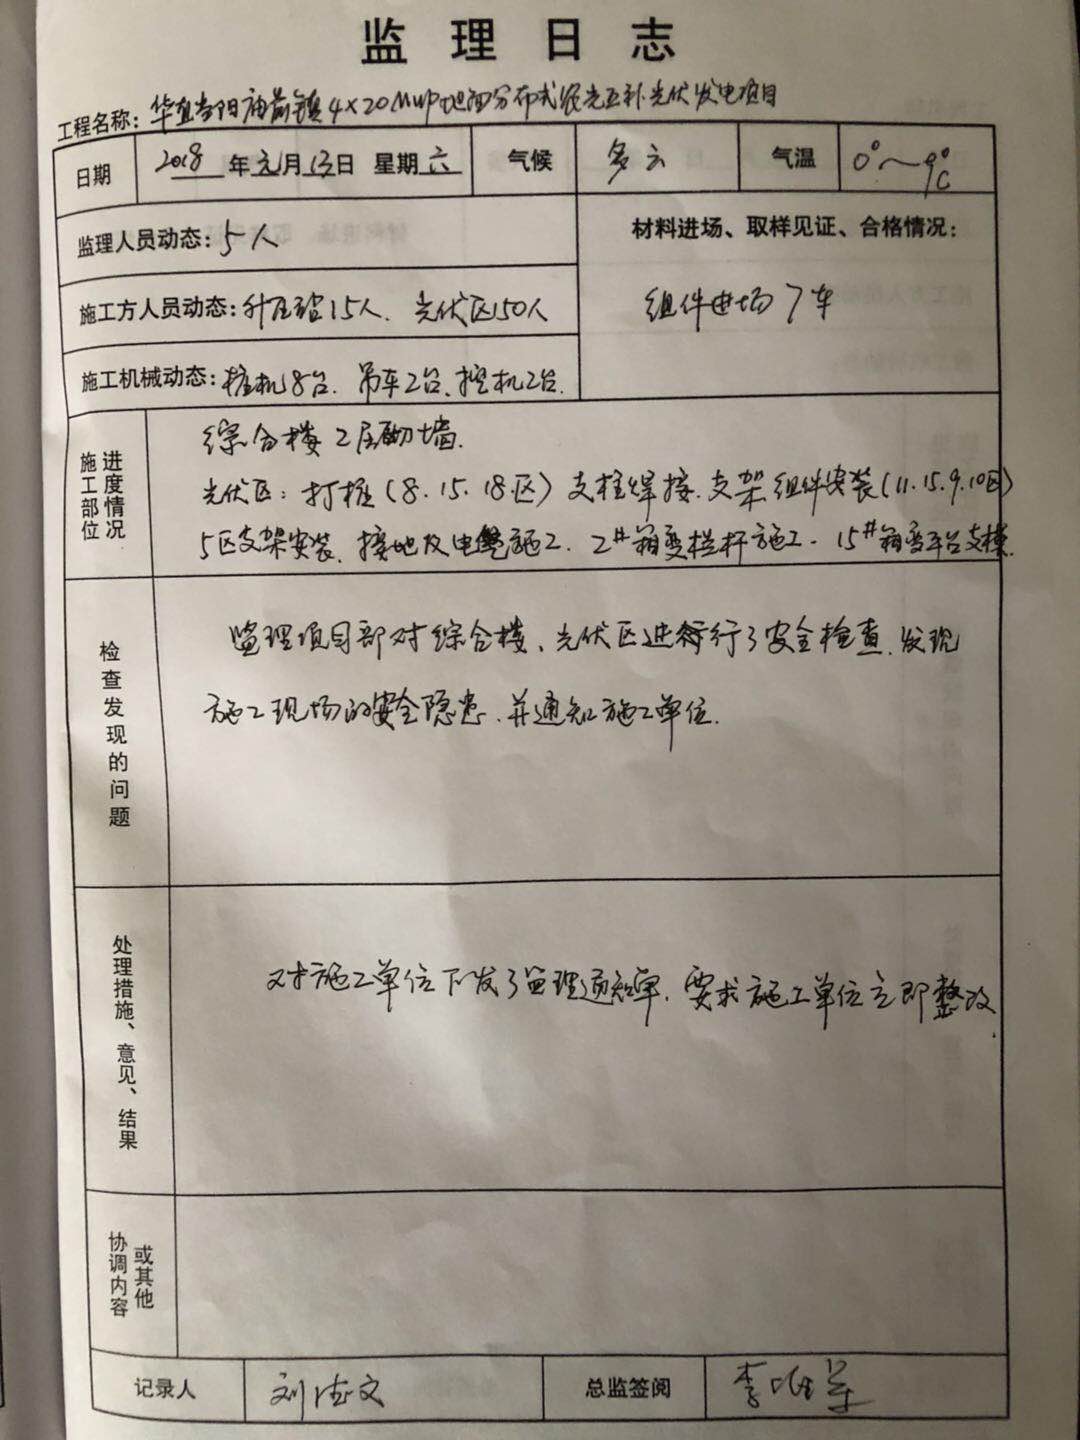 监理日志
工程名称：华直当阳庙前镇4×20MWp地面分布式农光互补光伏发电项目
日期 2018年元月13日 星期六 气候 多云 气温 0°～9℃
监理人员动态：5人
材料进场、取样见证、合格情况：
组件进场7车
施工方人员动态：升压站15人、光伏区150人
施工机械动态：桩机8台、吊车2台、挖机2台.
施工部位进度情况
综合楼2层砌墙.
光伏区：打桩（8.15.18区）支柱焊接.支架组件安装（11.15.9.10区）
5区支架安装、接地及电缆施工.2#箱变栏杆施工.15#箱变平台支模.
检查发现的问题
监理项目部对综合楼、光伏区进行了安全检查.发现
施工现场的安全隐患.并通知施工单位.
处理措施、意见、结果
对施工单位下发了监理通知单.要求施工单位立即整改.
协调内容或其他
记录人 刘 文 总监签阅 李